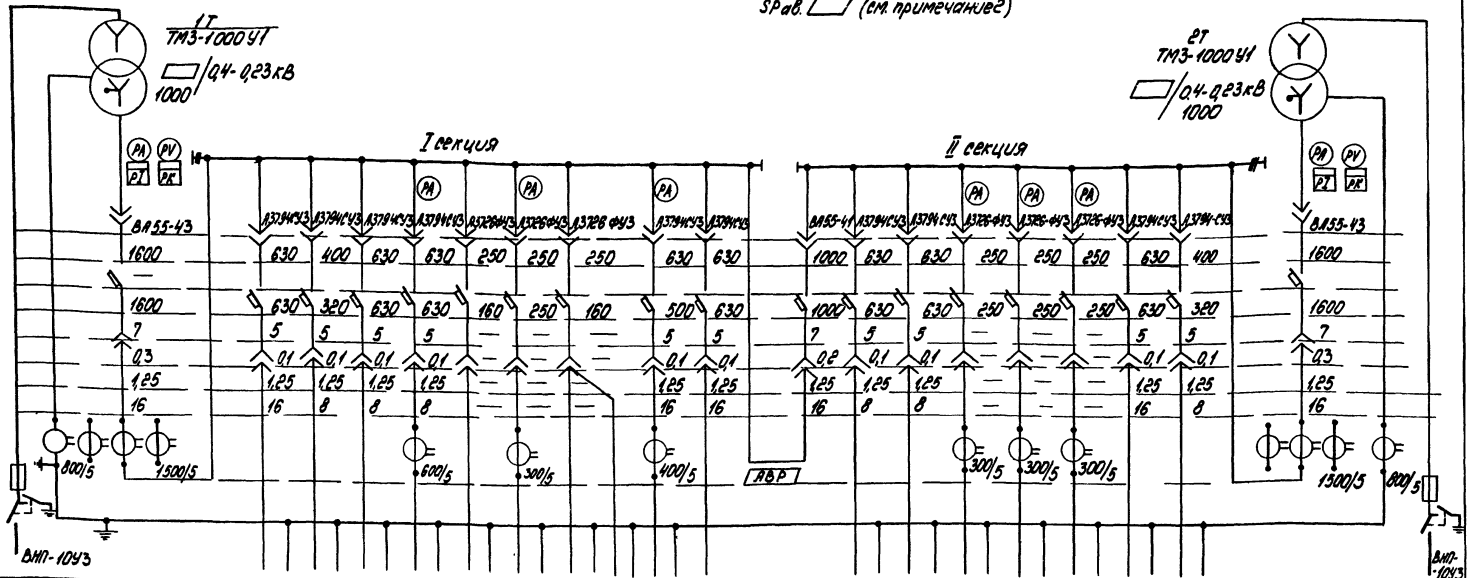 Sрав. (см. примечание2)
1Т
ТМЗ-1000У1
/0,4-0,23кВ
1000
2Т
ТМЗ-1000У1
/0,4-0,23кВ
1000
I секция
II секция
PA PV
PI PK
PA PA PA
PA PA PA
PA PV
PI PK
ВА55-43 А3794СУЗ А3794СУЗ А3794СУЗ А3794СУЗ А3726ФУЗ А3726ФУЗ А3726 ФУЗ А3794СУЗ А3794СУЗ ВА55-41 А3794СУЗ А3794СУЗ А3726-ФУЗ А3726-ФУЗ А3726-ФУЗ А3794СУЗ А3794-СУЗ ВА55-43
1600 630 400 630 630 250 250 250 630 630 1000 630 630 250 250 250 630 400 1600
1600 630 320 630 630 160 250 160 500 630 1000 630 630 250 250 250 630 320 1600
7 5 5 5 5 — — — 5 5 7 5 5 — — — 5 5 7
0,3 0,1 0,1 0,1 0,1 — — — 0,1 0,1 0,2 0,1 0,1 — — — 0,1 0,1 0,3
1,25 1,25 1,25 1,25 1,25 — — — 1,25 1,25 1,25 1,25 1,25 — — — 1,25 1,25 1,25
16 16 8 8 8 — — — 16 16 16 8 8 — — — 16 8 16
800/5 1500/5 600/5 300/5 400/5 300/5 300/5 300/5 1500/5 800/5
АВР
ВНП-10У3
ВНП-
-10У3